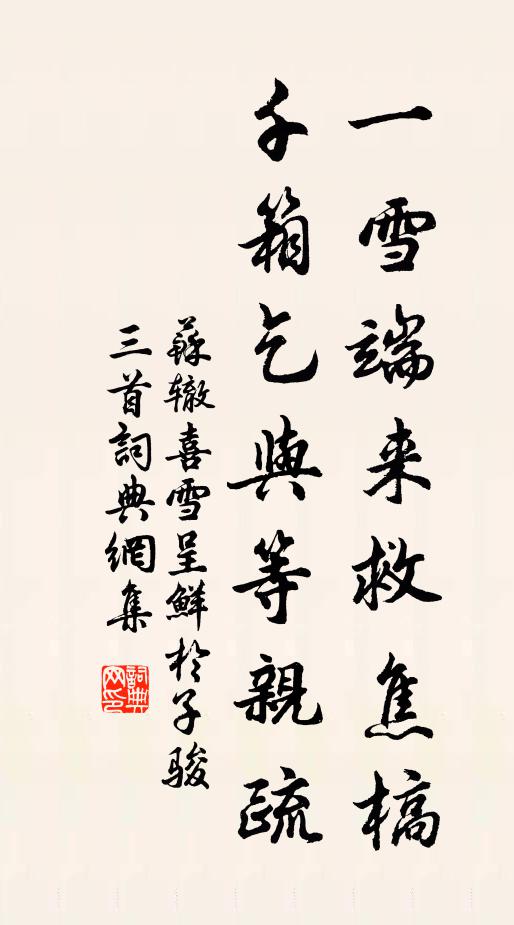 一雪端来救焦槁
千箱乞與等親疏
蘇辙喜雪呈鮮於子駿
三首詞典網集
詞典
网印